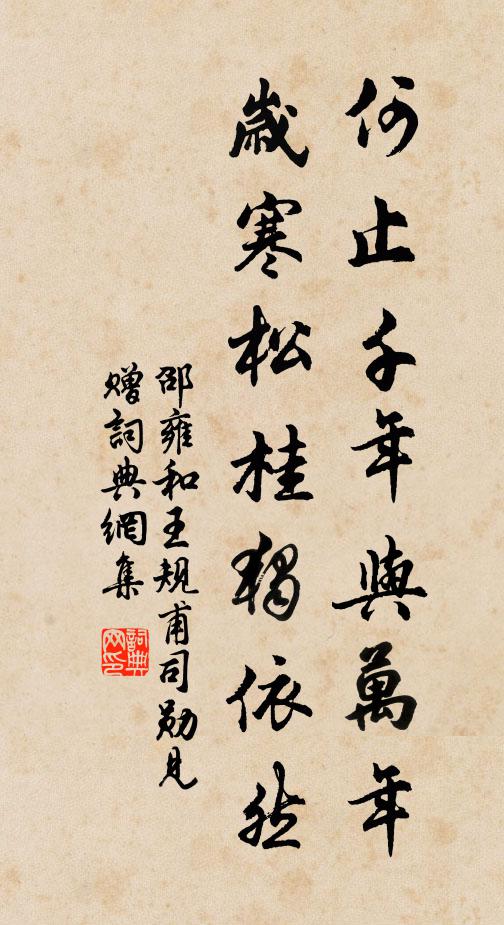 何止千年與萬年
歲寒松桂獨依然
邵雍和王規甫司勛見
贈詞典網集
詞典
网印